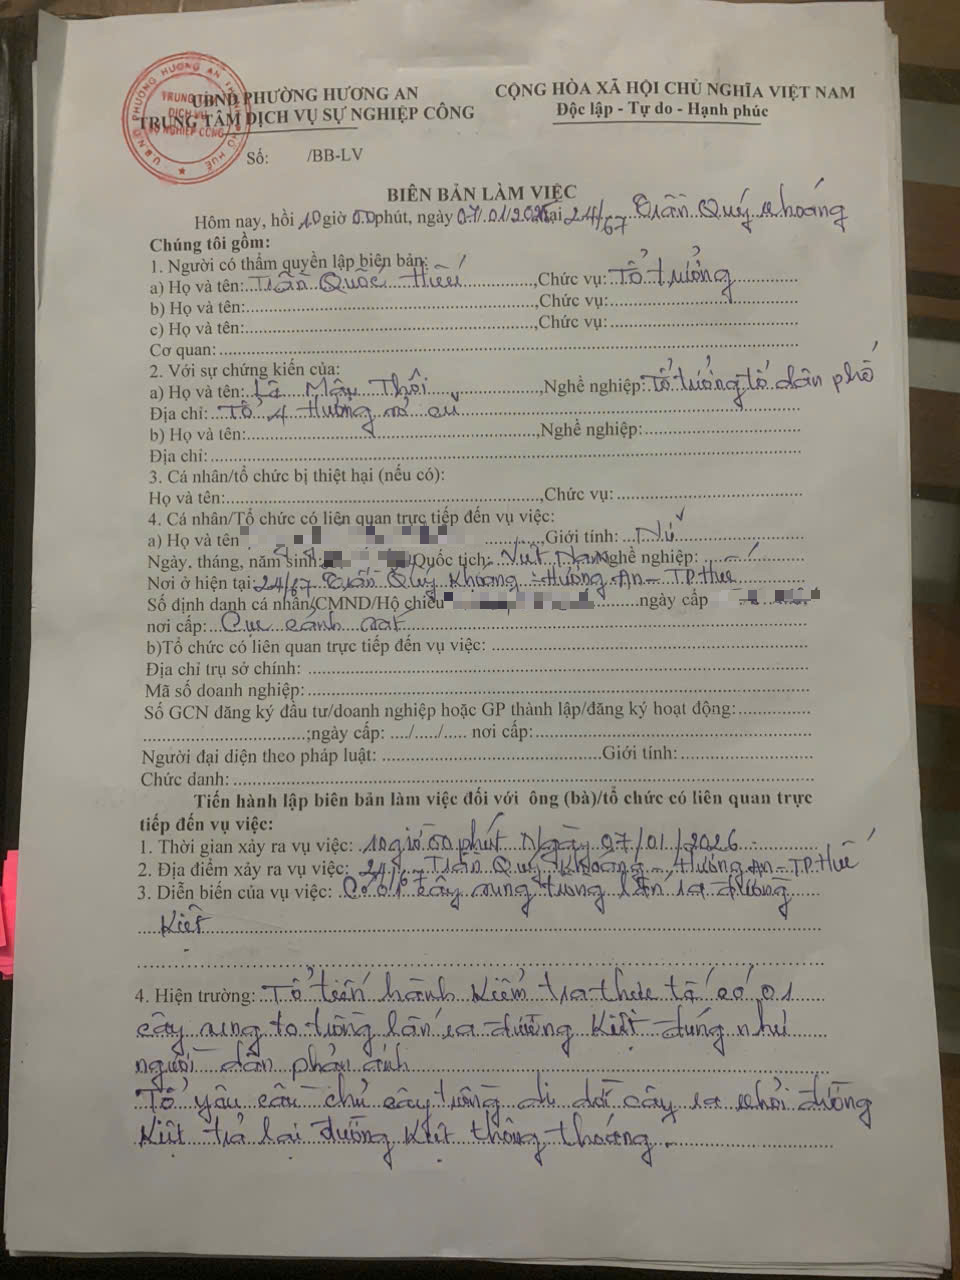 UBND PHƯỜNG HƯƠNG AN
TRUNG TÂM DỊCH VỤ SỰ NGHIỆP CÔNG
CỘNG HÒA XÃ HỘI CHỦ NGHĨA VIỆT NAM
Độc lập - Tự do - Hạnh phúc
Số: /BB-LV
BIÊN BẢN LÀM VIỆC
Hôm nay, hồi 10 giờ 00 phút, ngày 07/01/2026 tại 24/67 Trần Quý Khoáng
Chúng tôi gồm:
1. Người có thẩm quyền lập biên bản:
a) Họ và tên: Trần Quốc Hiếu, Chức vụ: Tổ trưởng
b) Họ và tên:, Chức vụ:
c) Họ và tên:, Chức vụ:
Cơ quan:
2. Với sự chứng kiến của:
a) Họ và tên: Lê Mậu Thôi, Nghề nghiệp: Tổ trưởng tổ dân phố
Địa chỉ: Tổ 4 Hương
b) Họ và tên:, Nghề nghiệp:
Địa chỉ:
3. Cá nhân/tổ chức bị thiệt hại (nếu có):
Họ và tên:, Chức vụ:
4. Cá nhân/Tổ chức có liên quan trực tiếp đến vụ việc:
a) Họ và tên, Giới tính: Nữ
Ngày, tháng, năm sinh: Quốc tịch: Việt Nam Nghề nghiệp:
Nơi ở hiện tại: 24/67 Trần Quý Khoáng - Hương An - TP Huế
Số định danh cá nhân/CMND/Hộ chiếu ngày cấp
nơi cấp: Cục cảnh sát
b) Tổ chức có liên quan trực tiếp đến vụ việc:
Địa chỉ trụ sở chính:
Mã số doanh nghiệp:
Số GCN đăng ký đầu tư/doanh nghiệp hoặc GP thành lập/đăng ký hoạt động:
;ngày cấp: ..../...../..... nơi cấp:
Người đại diện theo pháp luật: Giới tính:
Chức danh:
Tiến hành lập biên bản làm việc đối với ông (bà)/tổ chức có liên quan trực
tiếp đến vụ việc:
1. Thời gian xảy ra vụ việc: 10 giờ 00 phút Ngày 07/01/2026
2. Địa điểm xảy ra vụ việc: 24/67 Trần Quý Khoáng - Hương An - TP. Huế
3. Diễn biến của vụ việc: Có 01 cây sung tưồng lấn ra đường
Kiệt
4. Hiện trường: Tổ tiến hành Kiểm tra thực tế có 01
cây sung to tưồng lấn ra đường Kiệt đúng như
người dân phản ánh
Tổ yêu cầu chủ cây tưồng di dời cây ra khỏi đường
Kiệt trả lại đường Kiệt thông thoáng.